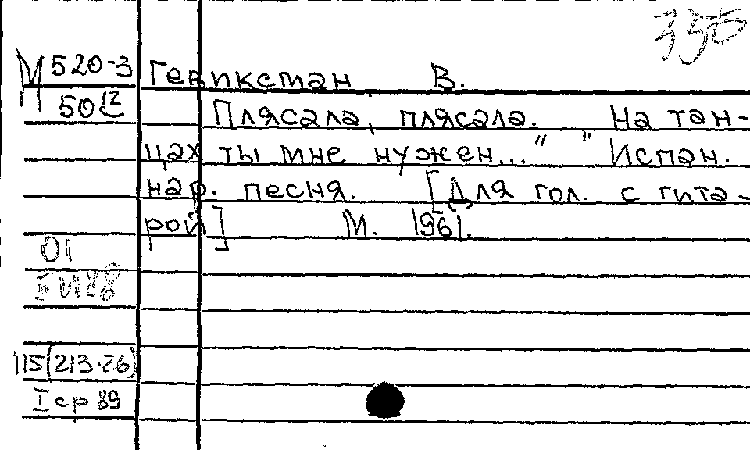 335
М 520-3 Гедиксман В.
50
Плясала, плясала. На тан-
цах ты мне нужен..." " Испан.
нар. песня. [Для гол. с гита-
рой] М. 1961.
01
115(213.26)
I ср 89